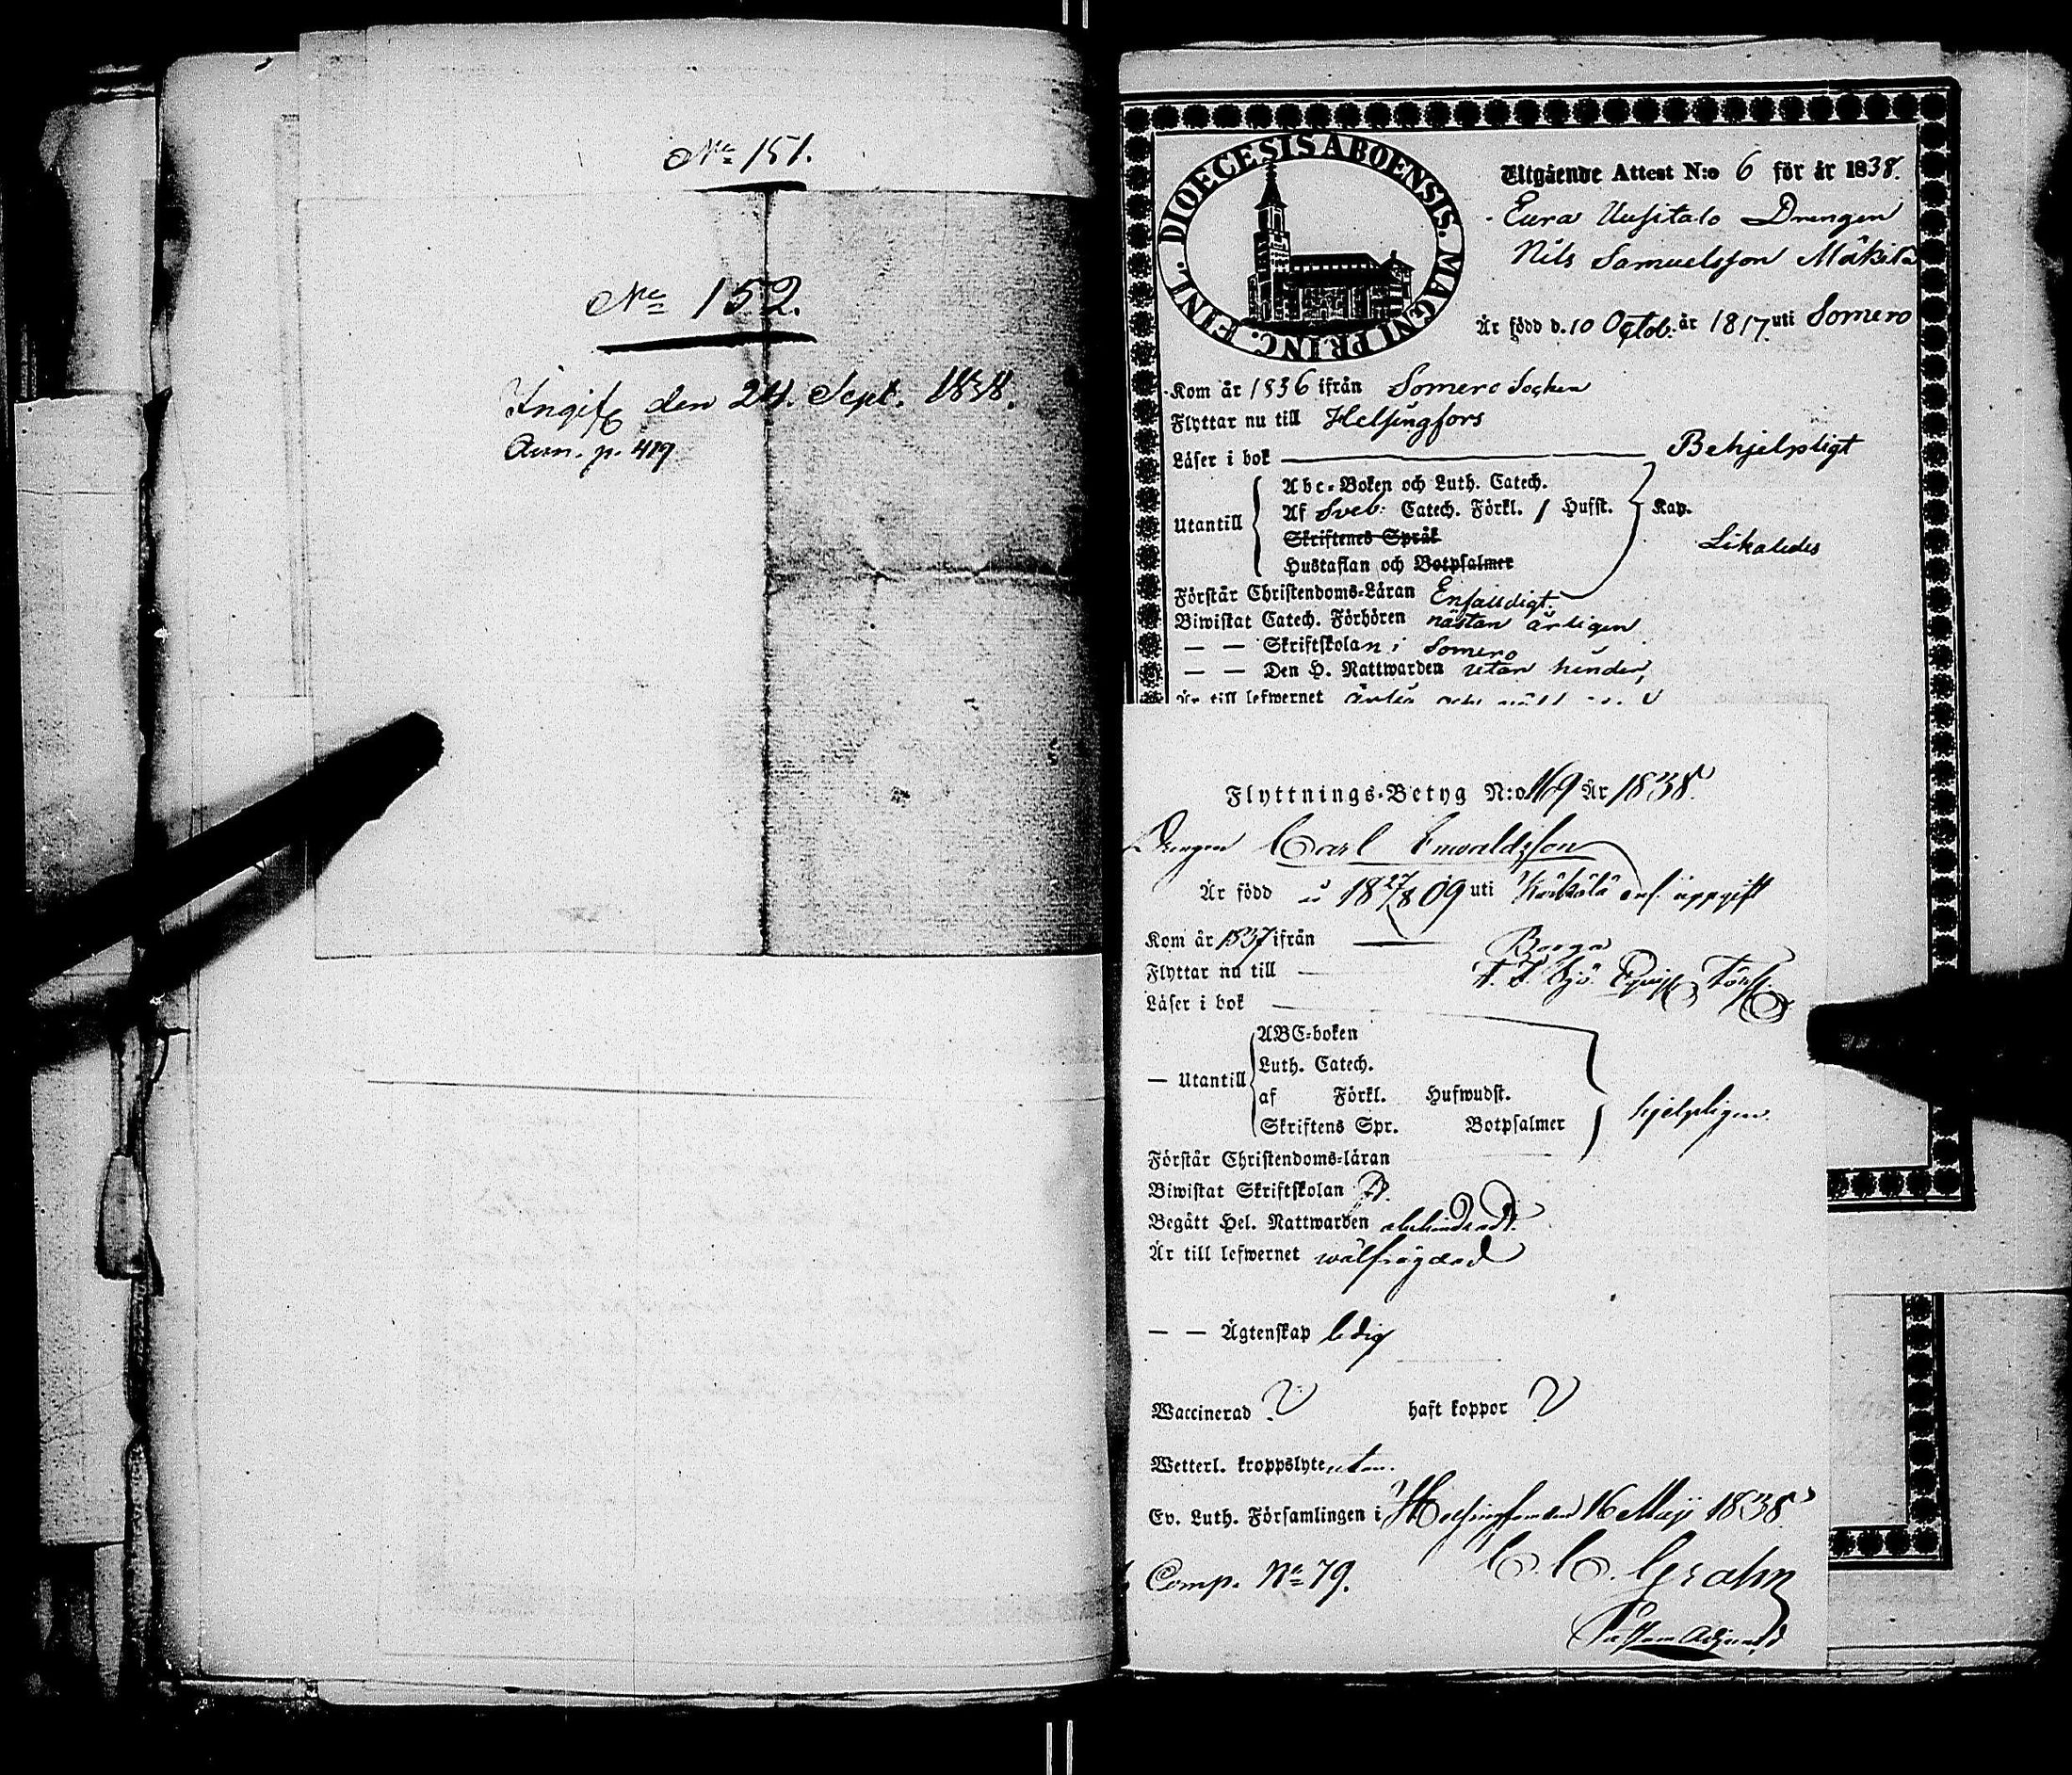 No 151.
No 152.
Ingifv den 24. Sept. 1838.
Ann. p. 419
DIOECESIS ABOENSIS. MAGNI PRINC. FINL.
Utgående Attest N:o 6 för år 1838.
Eura Uusitalo Drengen
Nils Samuelsson Mäkilä
Är född d. 10 Octob. år 1817 uti Somero
Kom år 1836 ifrån Somero Socken
Flyttar nu till Helsingfors
Läser i bok Behjelpligt
Utantill
Abc-Boken och Luth. Catech.
Af Sveb: Catech. Förkl. 1 Hufst. Kap.
Skriftenes Språk
Hustaflan och Botpsalmer
Likaledes
Förstår Christendoms-Läran Enfaldigt.
Biwistat Catech. Förhören nästan årligen
— — Skriftskolan i Somero
— — Den H. Nattwarden utan hinder,
Är till lefwernet ärlig och
Flyttnings-Betyg N:o 169 År 1838.
Drengen Carl Enwaldsson
Är född 18 27/8 09 uti Kärkölä enl. uppgift
Kom år 1837 ifrån Borgå
Flyttar nu till
Läser i bok
— Utantill
ABC-boken
Luth. Catech.
af Förkl. Hufwudst.
Skriftens Spr. Botpsalmer
hjelpligen.
Förstår Christendoms-läran
Biwistat Skriftskolan
Begått Hel. Nattwarden obehindradt.
Är till lefwernet wälfrägdad
— — Ägtenskap ledig
Waccinerad ? haft koppor ?
Wetterl. kroppslyte utan.
Ev. Luth. Församlingen i Helsingfors den 16 Maji 1838
Comp. No 79.
C. C. Grahn
Past. Adjunct